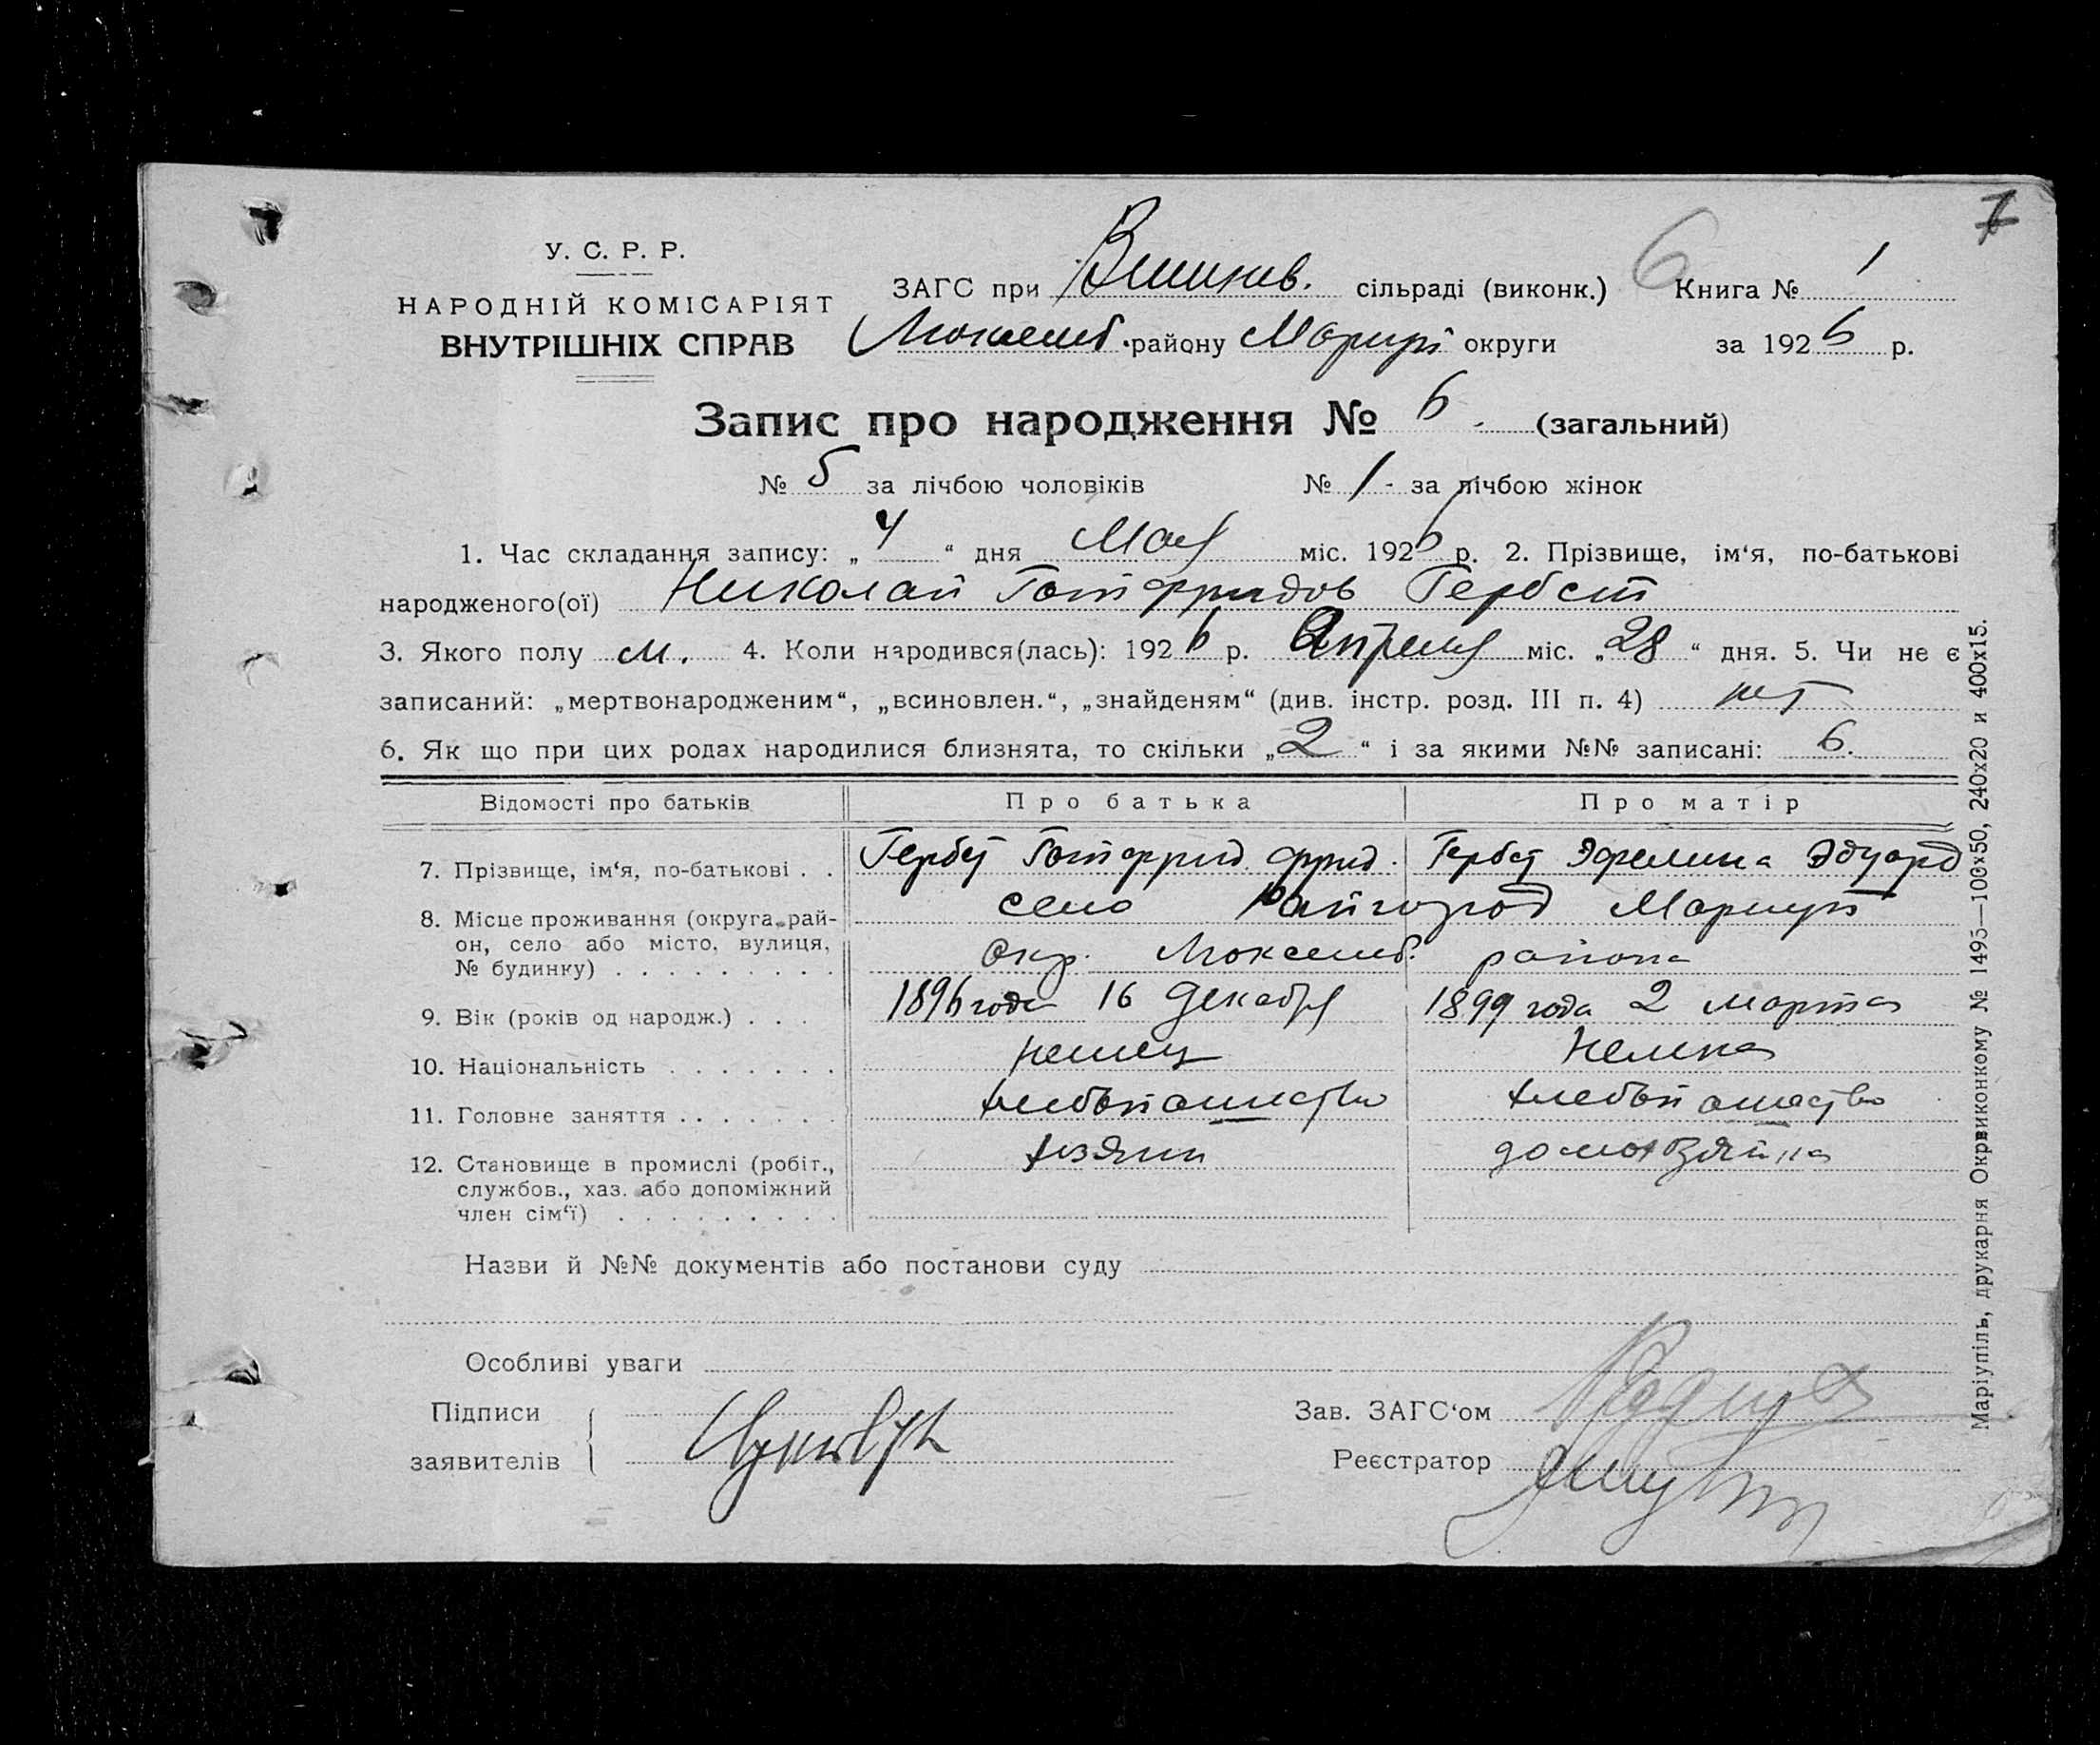 7
У. С. Р. Р.
НАРОДНІЙ КОМІСАРІЯТ
ВНУТРІШНІХ СПРАВ
ЗАГС при сільраді (виконк.) 6 Книга № 1
району Мариуп округи за 1926 р.
Запис про народження № 6 (загальний)
№ 5 за лічбою чоловіків № 1 - за лічбою жінок
1. Час складання запису: „ 4 “ дня Мая міс. 1926 р. 2. Прізвище, ім‘я, по-батькові
народженого(ої) Николай Готфридов Гербст
3. Якого полу м. 4. Коли народився(лась): 1926 р. Апреля міс. „28“ дня. 5. Чи не є
записаний: „мертвонародженим“, „всиновлен.“, „знайденям“ (див. інстр. розд. III п. 4) нет
6. Як що при цих родах народилися близнята, то скільки „2“ і за якими №№ записані: 6.
Відомості про батьків Про батька Про матір
7. Прізвище, ім‘я, по-батькові . . Гербст Готфрид фрид. Гербст Эдуард
8. Місце проживання (округа, рай-
он, село або місто, вулиця,
№ будинку) . . . . . . . . .
село Райгород Мариуп
окр. района
9. Вік (років од народж.) . . . 1896 года 16 декабря 1899 года 2 марта
10. Національність . . . . . . . немец немка
11. Головне заняття . . . . . . . хлебопашество хлебопашество
12. Становище в промислі (робіт.,
службов., хаз. або допоміжний
член сім‘ї) . . . . . . . . .
хозяин домохозяйка
Назви й №№ документів або постанови суду
Особливі уваги
Підписи
заявителів
Зав. ЗАГС‘ом
Реєстратор
Маріупіль, друкарня Окрвиконкому № 1495—100х50, 240х20 и 400х15.